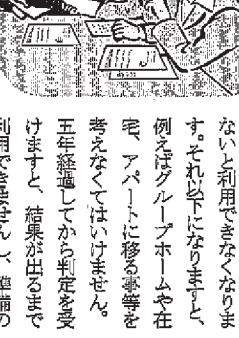 ないと利用できなくなりま
す。それ以下になりますと、
例えばグループホームや在
宅、アパートに移る事等を
考えなくてはいけません。
五年経過してから判定を受
けますと、結果が出るまで
利用できません